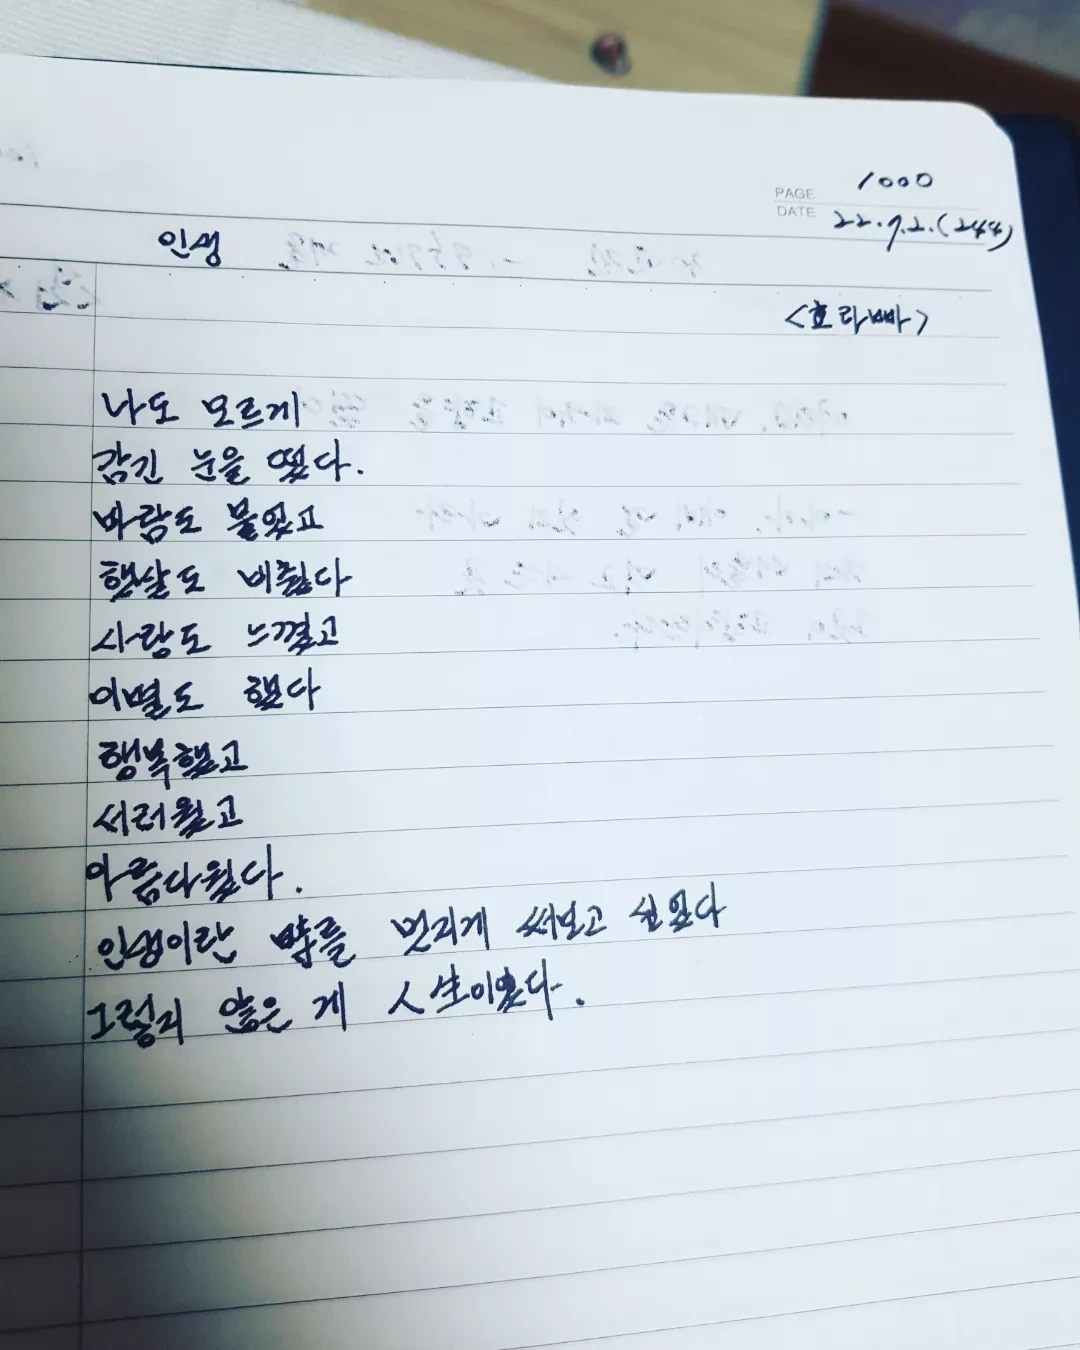 PAGE 1000
DATE 22.7.2.(244)
인생
<효라빠>
나도 모르게
감긴 눈을 떴다.
바람도 불었고
햇살도 비췄다
사랑도 느꼈고
이별도 했다
행복했고
서러웠고
아름다웠다.
인생이란 詩를 멋지게 써보고 싶었다
그렇지 않은 게 人生이었다.